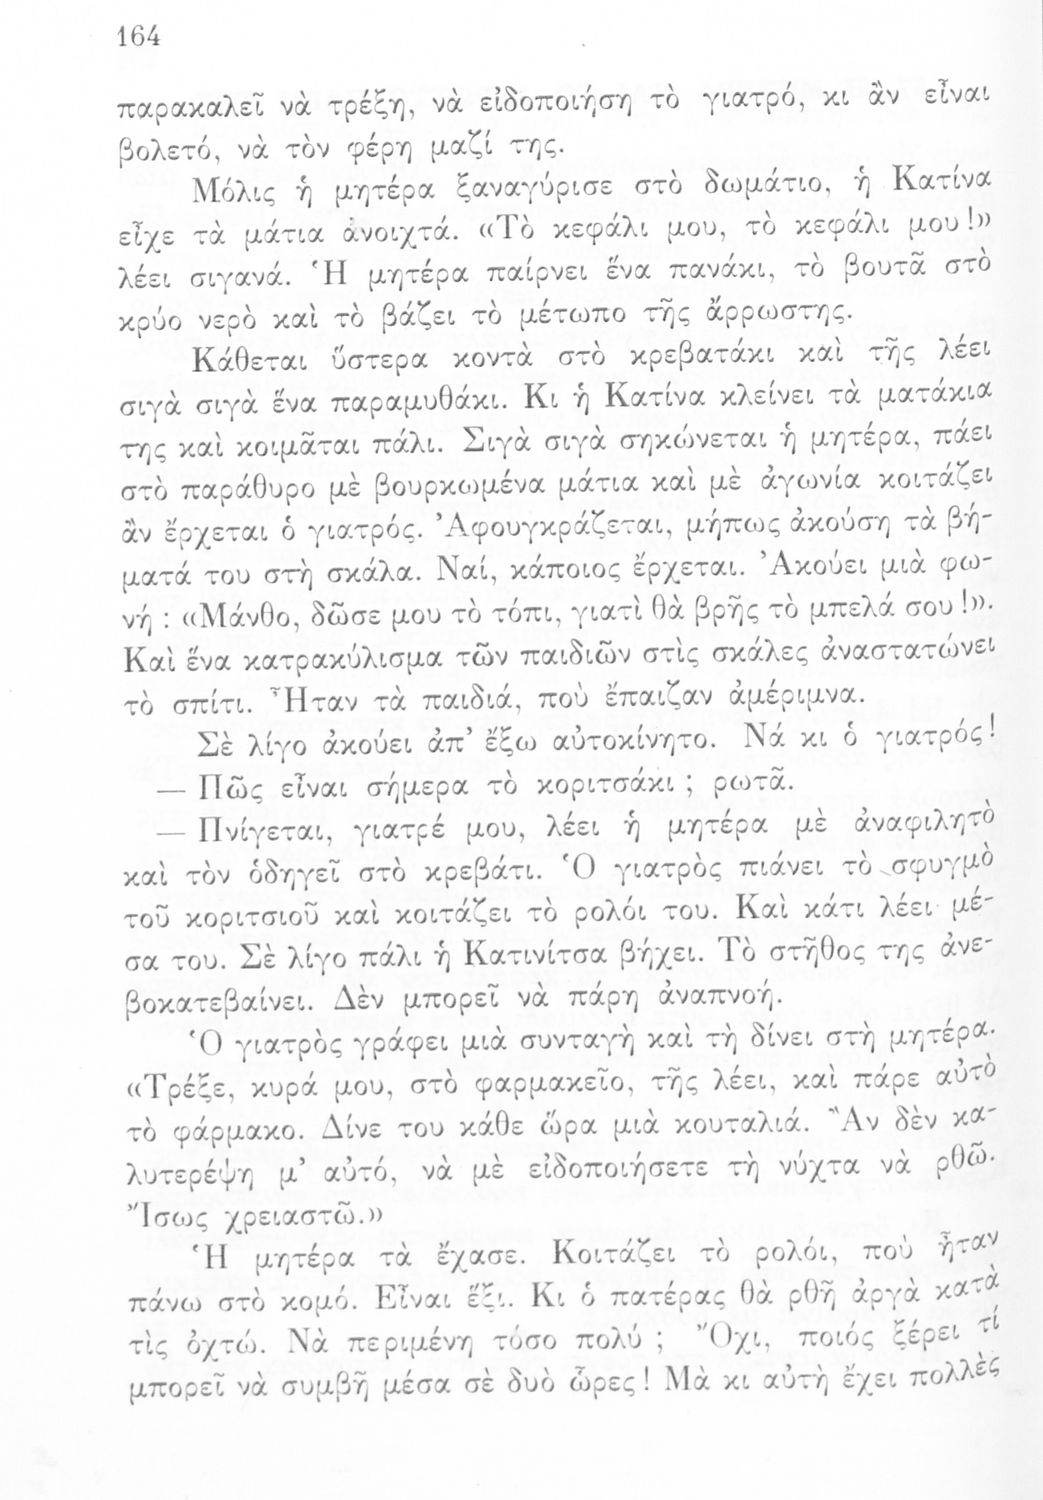 164
παρακαλεῖ νὰ τρέξη, νὰ εἰδοποιήση τὸ γιατρό, κι ἂν εἶναι
βολετό, νὰ τὸν φέρη μαζί της.
Μόλις ἡ μητέρα ξαναγύρισε στὸ δωμάτιο, ἡ Κατίνα
εἶχε τὰ μάτια ἀνοιχτά. «Τὸ κεφάλι μου, τὸ κεφάλι μου!»
λέει σιγανά. Ἡ μητέρα παίρνει ἕνα πανάκι, τὸ βουτᾶ στὸ
κρύο νερὸ καὶ τὸ βάζει τὸ μέτωπο τῆς ἄρρωστης.
Κάθεται ὕστερα κοντὰ στὸ κρεβατάκι καὶ τῆς λέει
σιγὰ σιγὰ ἕνα παραμυθάκι. Κι ἡ Κατίνα κλείνει τὰ ματάκια
της καὶ κοιμᾶται πάλι. Σιγὰ σιγὰ σηκώνεται ἡ μητέρα, πάει
στὸ παράθυρο μὲ βουρκωμένα μάτια καὶ μὲ ἀγωνία κοιτάζει
ἂν ἔρχεται ὁ γιατρός. Ἀφουγκράζεται, μήπως ἀκούση τὰ βή-
ματά του στὴ σκάλα. Ναί, κάποιος ἔρχεται. Ἀκούει μιὰ φω-
νή : «Μάνθο, δῶσε μου τὸ τόπι, γιατὶ θὰ βρῆς τὸ μπελά σου!».
Καὶ ἕνα κατρακύλισμα τῶν παιδιῶν στὶς σκάλες ἀναστατώνει
τὸ σπίτι. Ἦταν τὰ παιδιά, ποὺ ἔπαιζαν ἀμέριμνα.
Σὲ λίγο ἀκούει ἀπ’ ἔξω αὐτοκίνητο. Νά κι ὁ γιατρός!
— Πῶς εἶναι σήμερα τὸ κοριτσάκι ; ρωτᾶ.
— Πνίγεται, γιατρέ μου, λέει ἡ μητέρα μὲ ἀναφιλητὸ
καὶ τὸν ὁδηγεῖ στὸ κρεβάτι. Ὁ γιατρὸς πιάνει τὸ σφυγμὸ
τοῦ κοριτσιοῦ καὶ κοιτάζει τὸ ρολόι του. Καὶ κάτι λέει μέ-
σα του. Σὲ λίγο πάλι ἡ Κατινίτσα βήχει. Τὸ στῆθος της ἀνε-
βοκατεβαίνει. Δὲν μπορεῖ νὰ πάρη ἀναπνοή.
Ὁ γιατρὸς γράφει μιὰ συνταγὴ καὶ τὴ δίνει στὴ μητέρα.
«Τρέξε, κυρά μου, στὸ φαρμακεῖο, τῆς λέει, καὶ πάρε αὐτὸ
τὸ φάρμακο. Δίνε του κάθε ὥρα μιὰ κουταλιά. Ἂν δὲν κα-
λυτερέψη μ’ αὐτό, νὰ μὲ εἰδοποιήσετε τὴ νύχτα νὰ ρθῶ.
Ἴσως χρειαστῶ.»
Ἡ μητέρα τὰ ἔχασε. Κοιτάζει τὸ ρολόι, ποὺ ἦταν
πάνω στὸ κομό. Εἶναι ἕξι. Κι ὁ πατέρας θὰ ρθῆ ἀργὰ κατὰ
τὶς ὀχτώ. Νὰ περιμένη τόσο πολύ ; Ὄχι, ποιός ξέρει τί
μπορεῖ νὰ συμβῆ μέσα σὲ δυὸ ὧρες! Μὰ κι αὐτὴ ἔχει πολλὲς